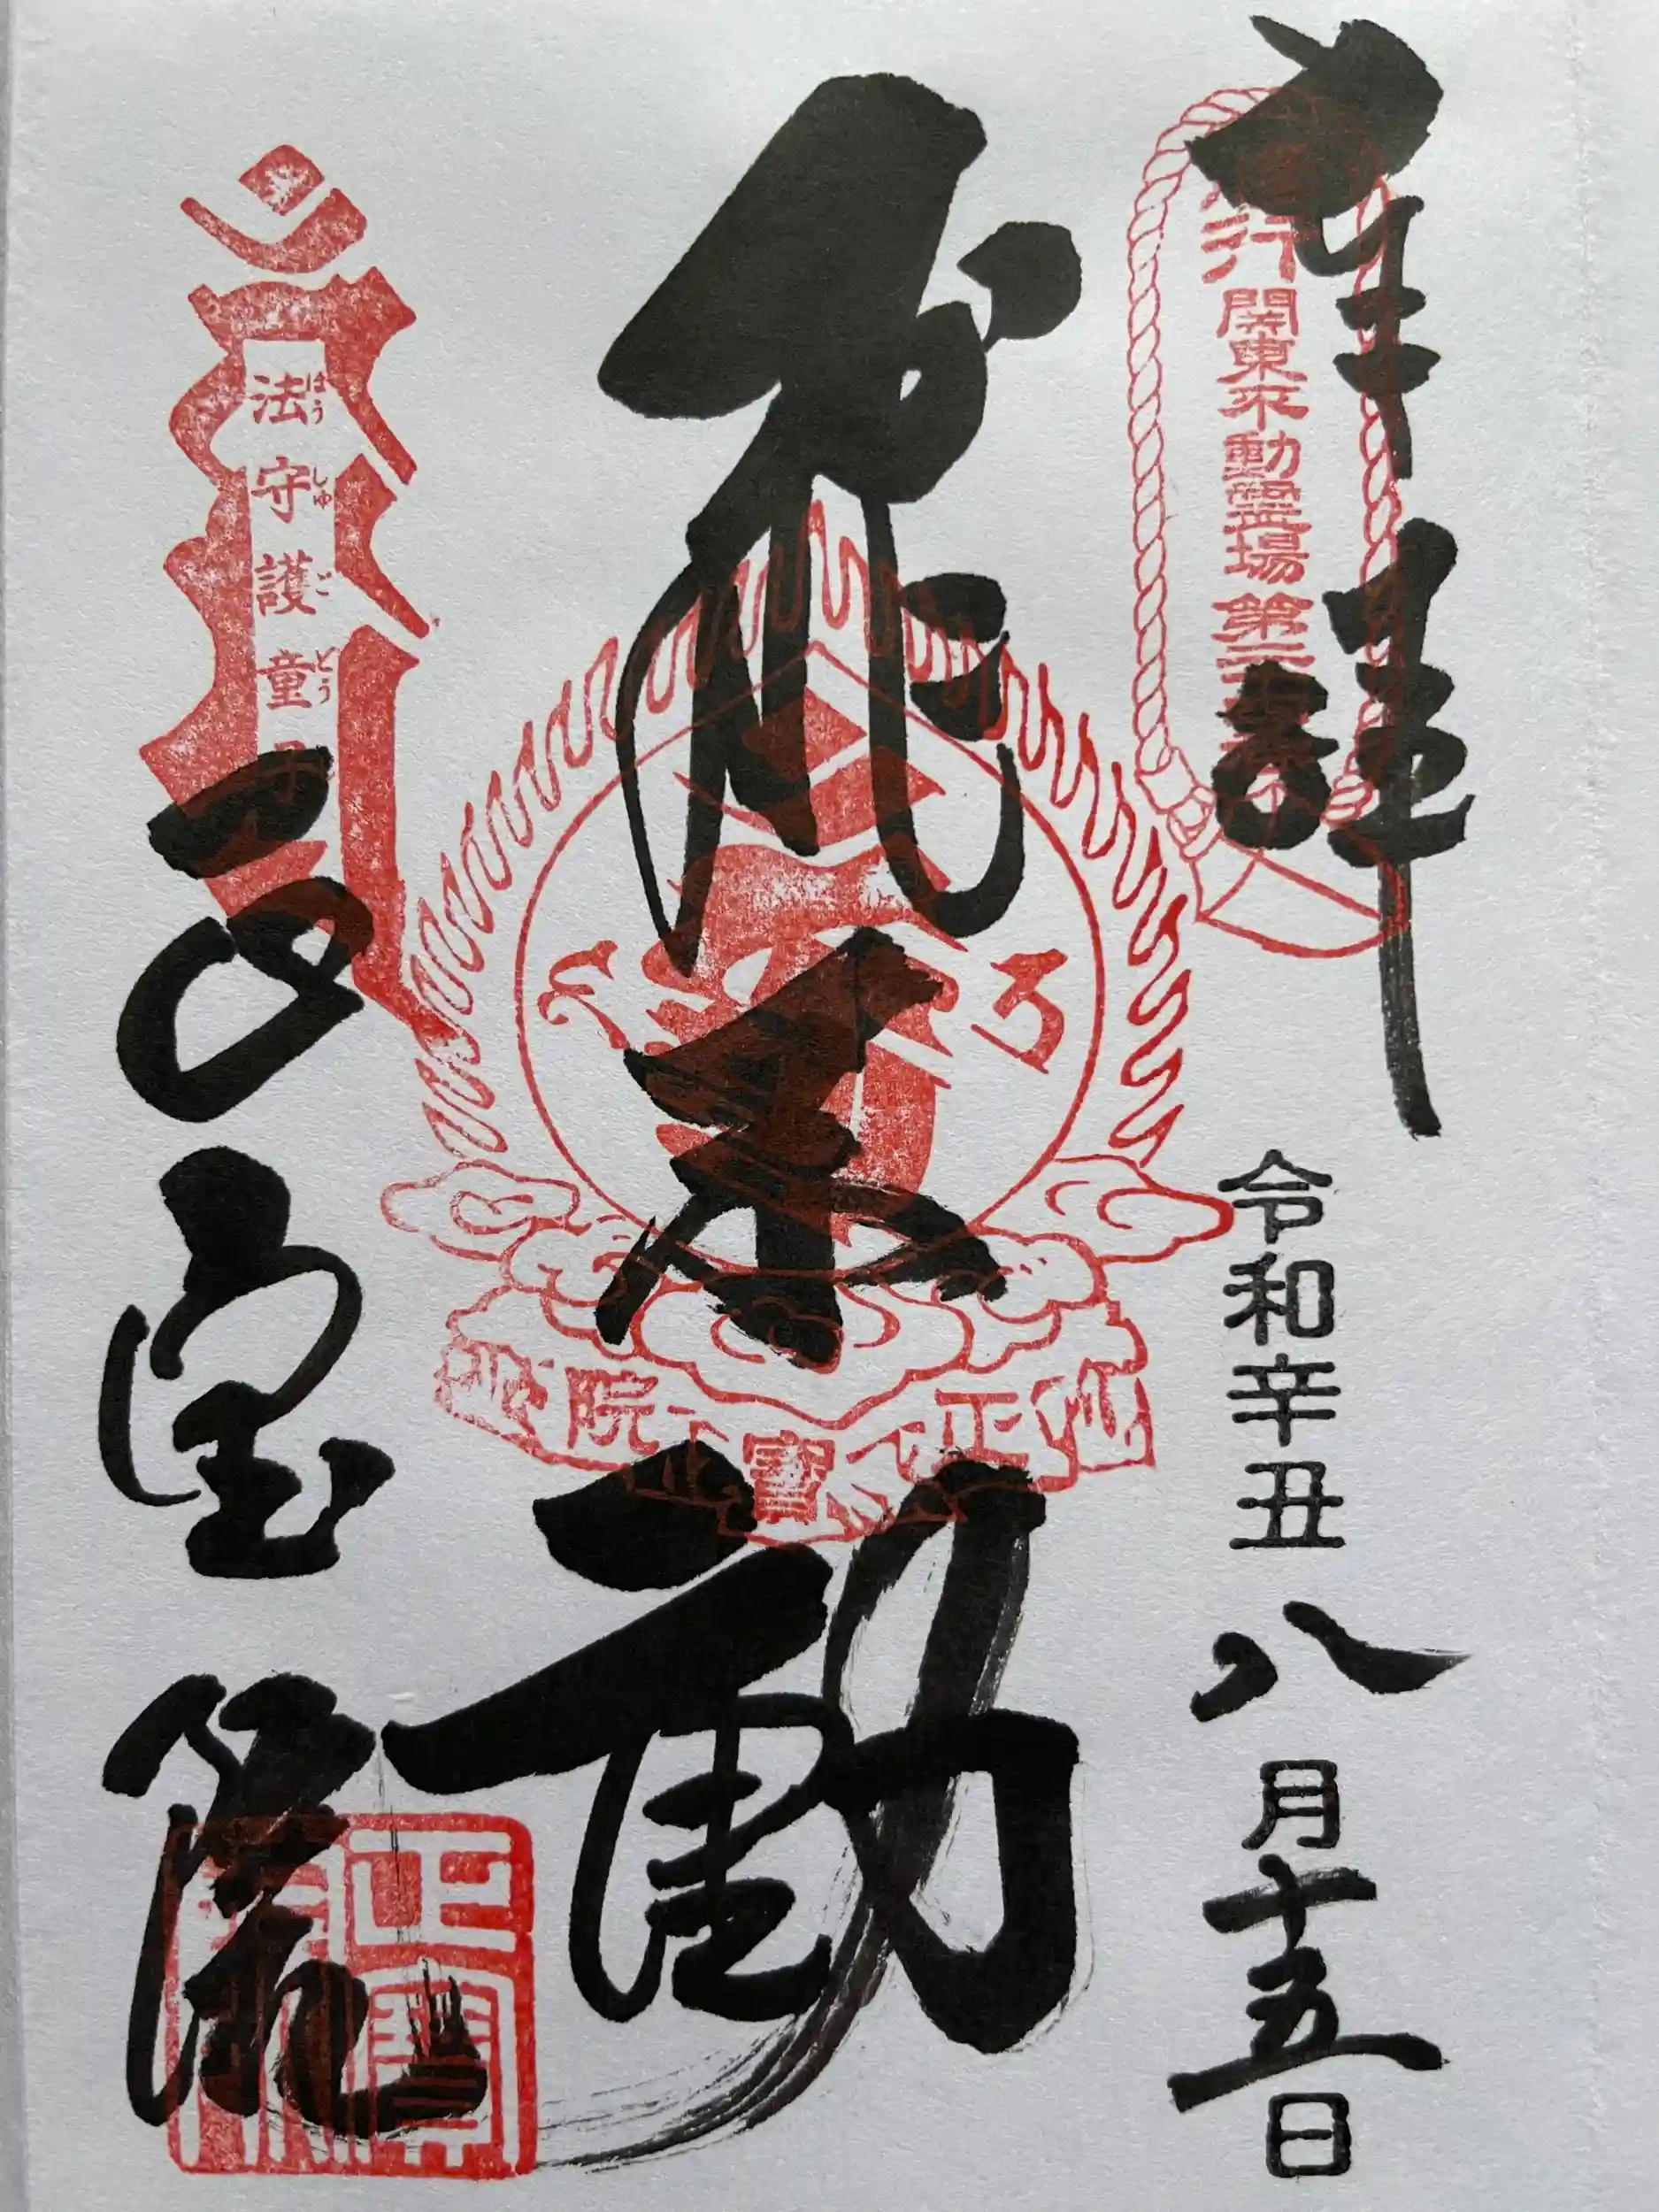 奉拝
行 関東不動霊場 第二十
令和辛丑八月十五日
飛不動
正寶院
法守護童
ほう しゅ ご どう
正宝院
正寶院